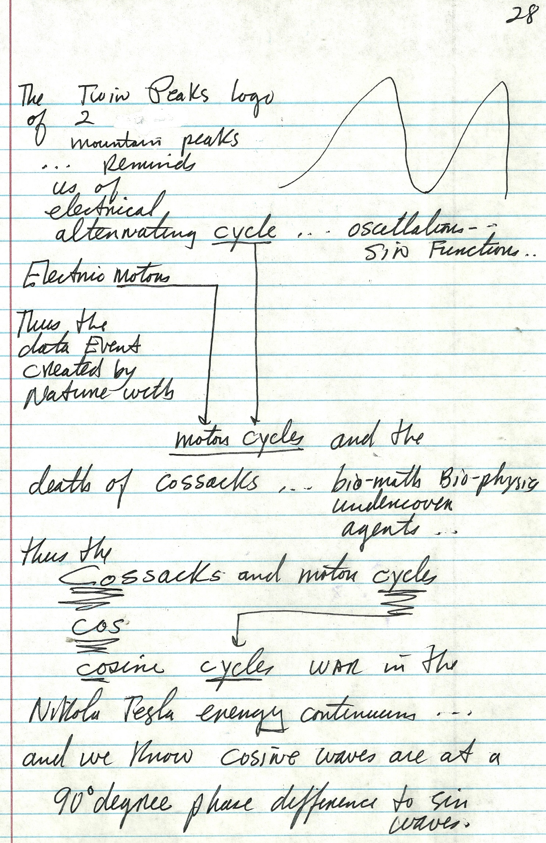 28
The Twin Peaks Logo
of 2
mountain peaks
... Reminds
us of
electrical
alternating cycle ... oscillations--
Sin Functions..
Electric motors
Thus the
data Event
created by
Nature with
motor cycles and the
death of cossacks .... bio-math Bio-physics
undercover
agents ...
thus the
Cossacks and motor cycles
cos
cosine cycles WAR in the
Nikola Tesla energy continuum ...
and we know cosine waves are at a
90° degree phase difference to sin
waves.